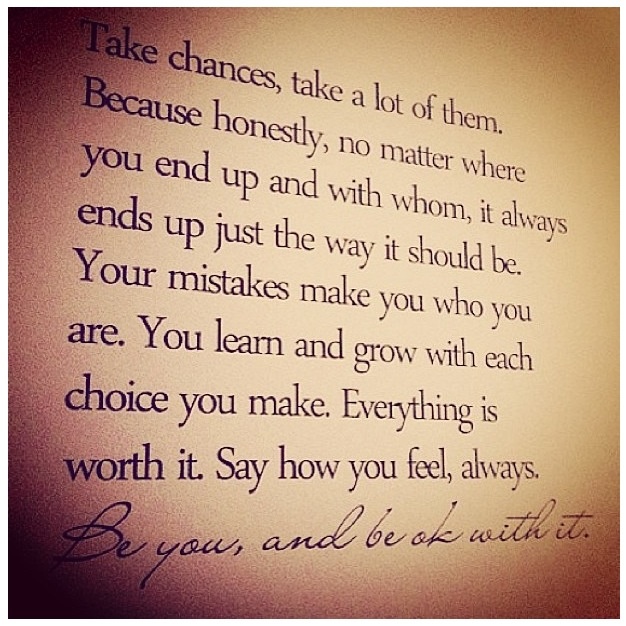 Take chances, take a lot of them.
Because honestly, no matter where
you end up and with whom, it always
ends up just the way it should be.
Your mistakes make you who you
are. You learn and grow with each
choice you make. Everything is
worth it. Say how you feel, always.
Be you, and be ok with it.